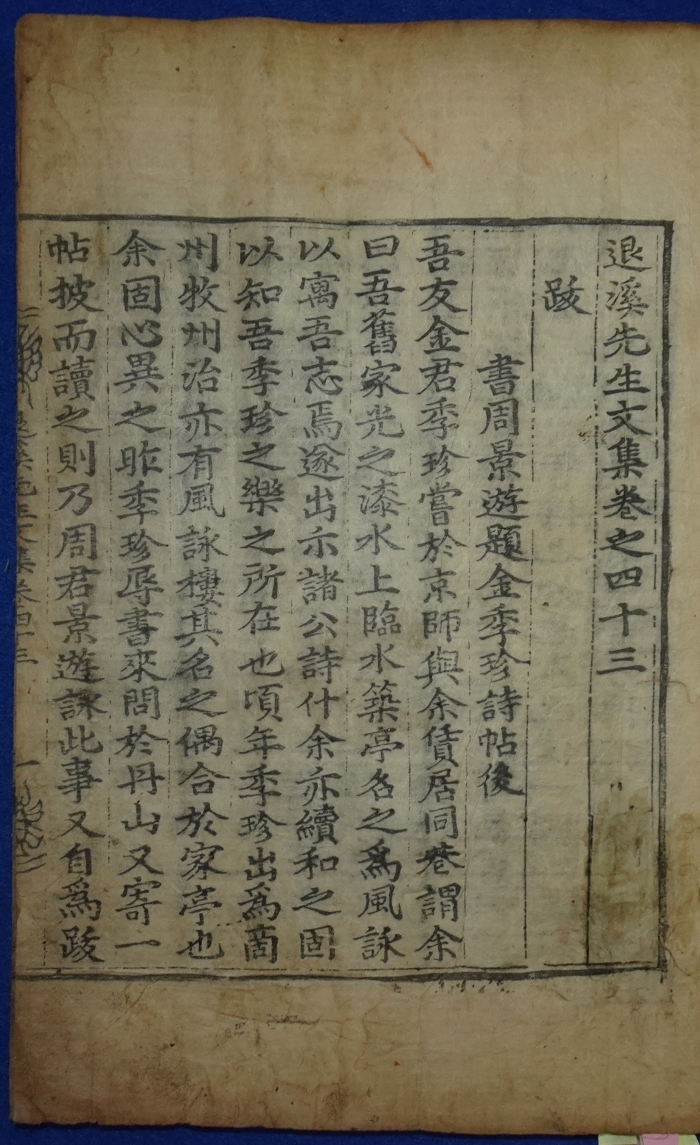 退溪先生文集卷之四十三
跋
書周景遊題金季珍詩帖後
吾友金君季珍嘗於京師與余賃居同巷謂余
曰吾舊家光之漆水上臨水築亭名之爲風詠
以寓吾志焉遂出示諸公詩什余亦續和之固
以知吾季珍之樂之所在也頃年季珍出爲商
州牧州治亦有風詠樓其名之偶合於家亭也
余固心異之昨季珍辱書來問於丹山又寄一
帖披而讀之則乃周君景遊詠此事又自爲跋
退溪先生文集卷四十三 一